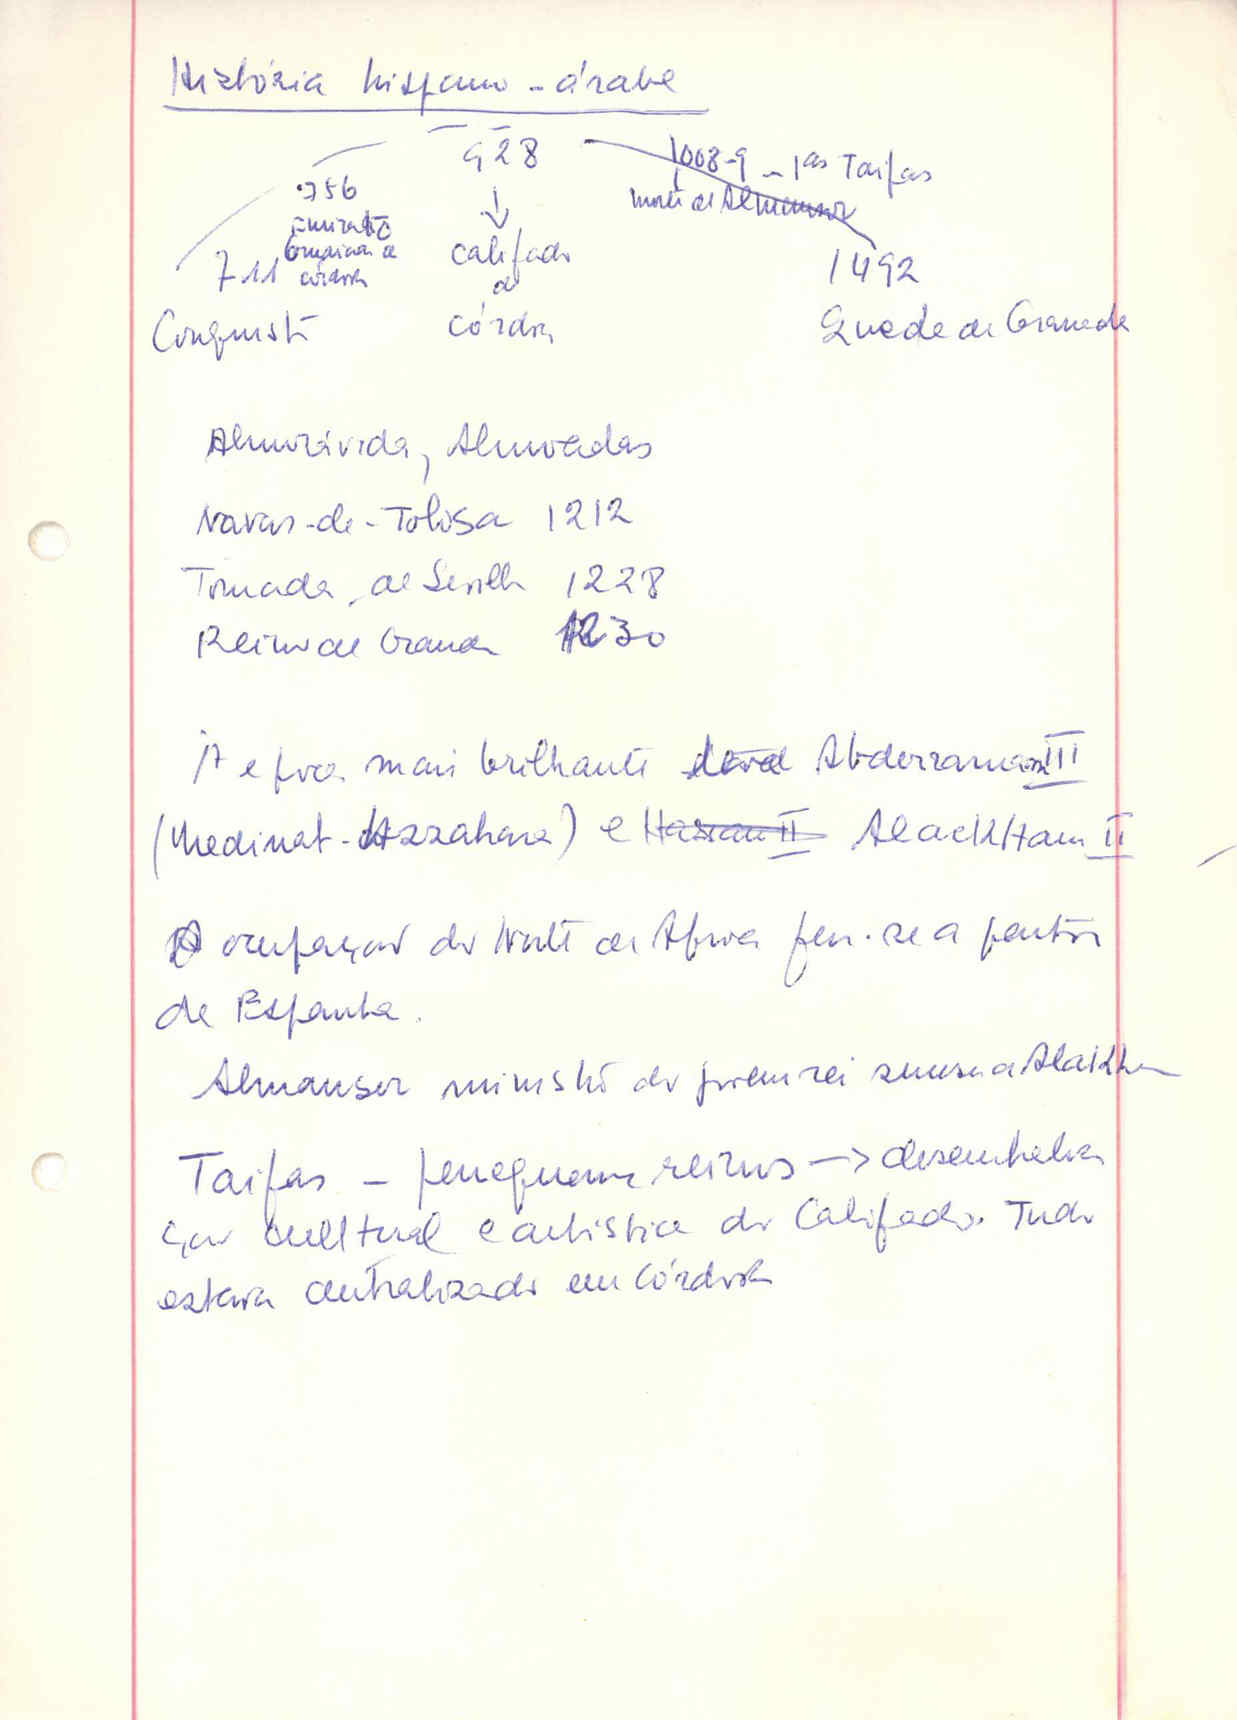 História hispano-árabe
928
1008-9 - 1as Taifas
756
morte de Almansor
Emirato
Omaiada de
Córdova
711
Califado
de
Córdova
1492
Conquista
Queda de Granada
Almorávida, Almoadas
Navas-de-Tolosa 1212
Tomada de Sevilha 1228
Reino de Granada 1230
A época mais brilhante Abderraman III
(Medinat-Azzahara) e Hassan II AlackHam II
A ocupação do Norte de África fez-se a partir
de Espanha.
Almansor ministro do jovem rei sucessor a
Taifas - pequenos reinos -> desembela
ção cultural e artística do Califado. Tudo
estava centralizado em Córdova